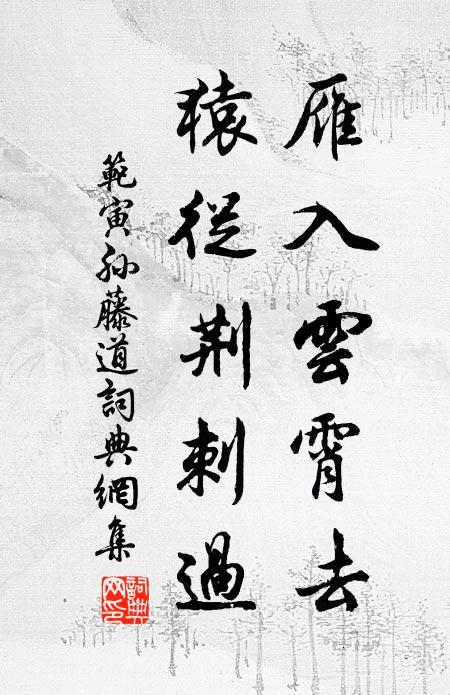 雁入雲霄去
猿從荆刺過
範寅孙藤道詞典網集